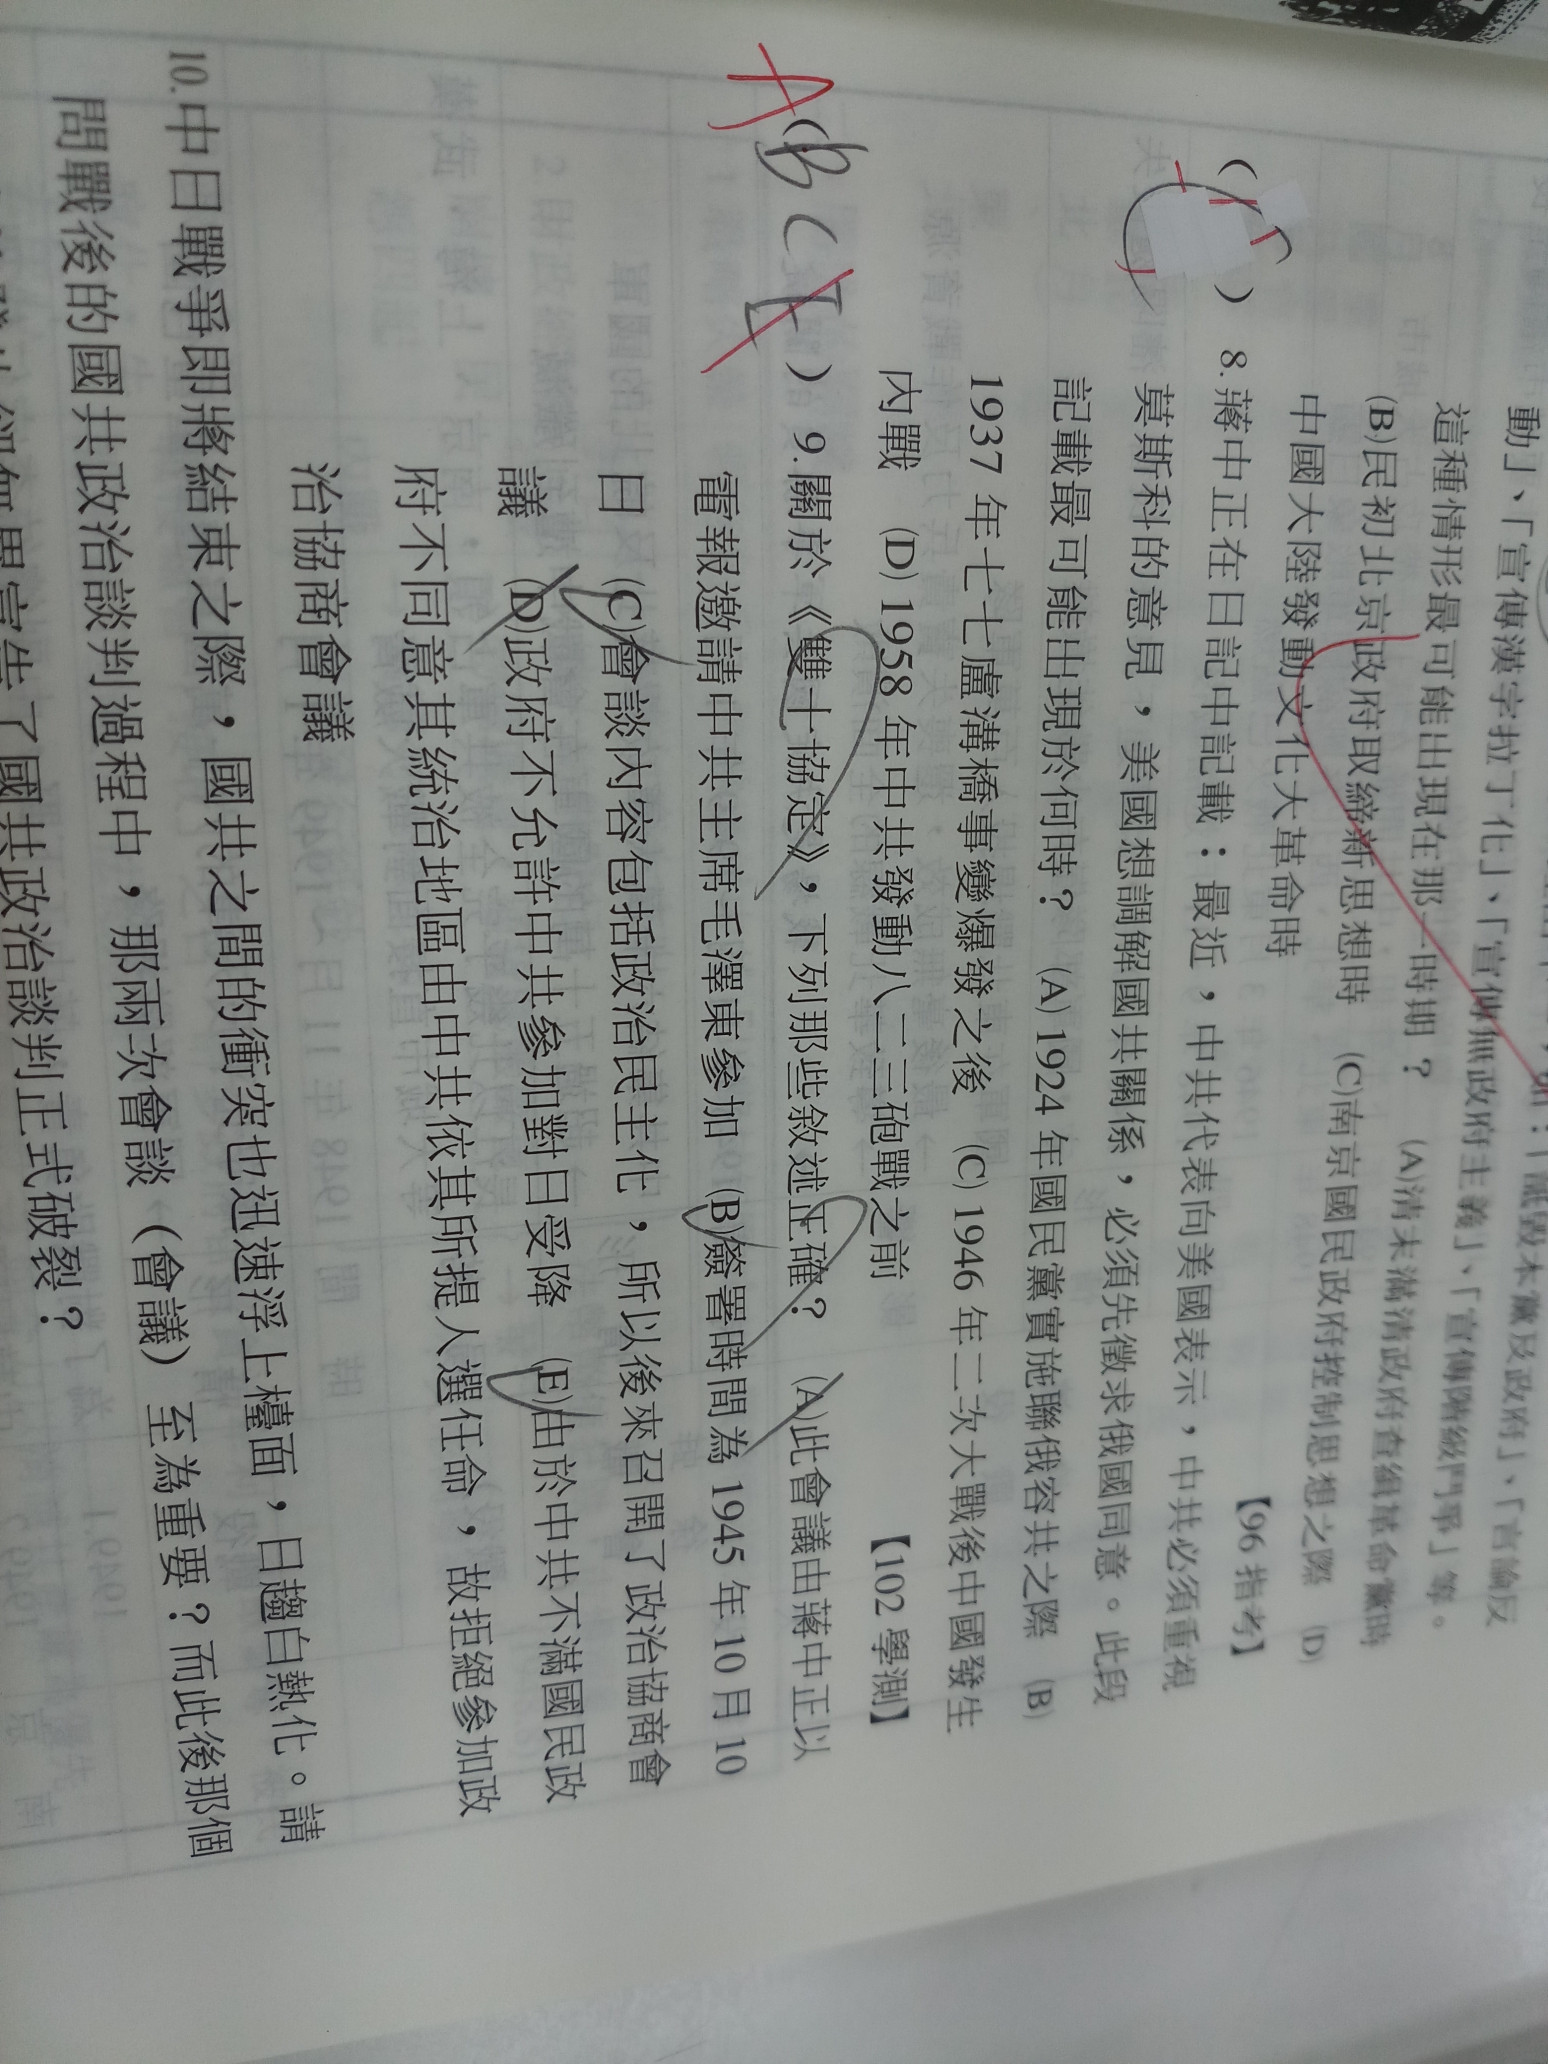 動」、「宣傳漢字拉丁化」、「宣傳無政府主義」、「宣傳階級鬥爭」等。
這種情形最可能出現在那一時期？ (A)清末滿清政府查緝革命黨時
(B)民初北京政府取締新思想時 (C)南京國民政府控制思想之際 (D)
中國大陸發動文化大革命時 【96 指考】
( ) 8.蔣中正在日記中記載：最近，中共代表向美國表示，中共必須重視
莫斯科的意見，美國想調解國共關係，必須先徵求俄國同意。此段
記載最可能出現於何時？ (A) 1924 年國民黨實施聯俄容共之際 (B)
1937 年七七盧溝橋事變爆發之後 (C) 1946 年二次大戰後中國發生
內戰 (D) 1958 年中共發動八二三砲戰之前 【102 學測】
A (B C E ) 9.關於《雙十協定》，下列那些敘述正確？ (A)此會議由蔣中正以
電報邀請中共主席毛澤東參加 (B)簽署時間為 1945 年 10 月 10
日 (C)會談內容包括政治民主化，所以後來召開了政治協商會
議 (D)政府不允許中共參加對日受降 (E)由於中共不滿國民政
府不同意其統治地區由中共依其所提人選任命，故拒絕參加政
治協商會議
10.中日戰爭即將結束之際，國共之間的衝突也迅速浮上檯面，日趨白熱化。請
問戰後的國共政治談判過程中，那兩次會談（會議）至為重要？而此後那個
了國共政治談判正式破裂？